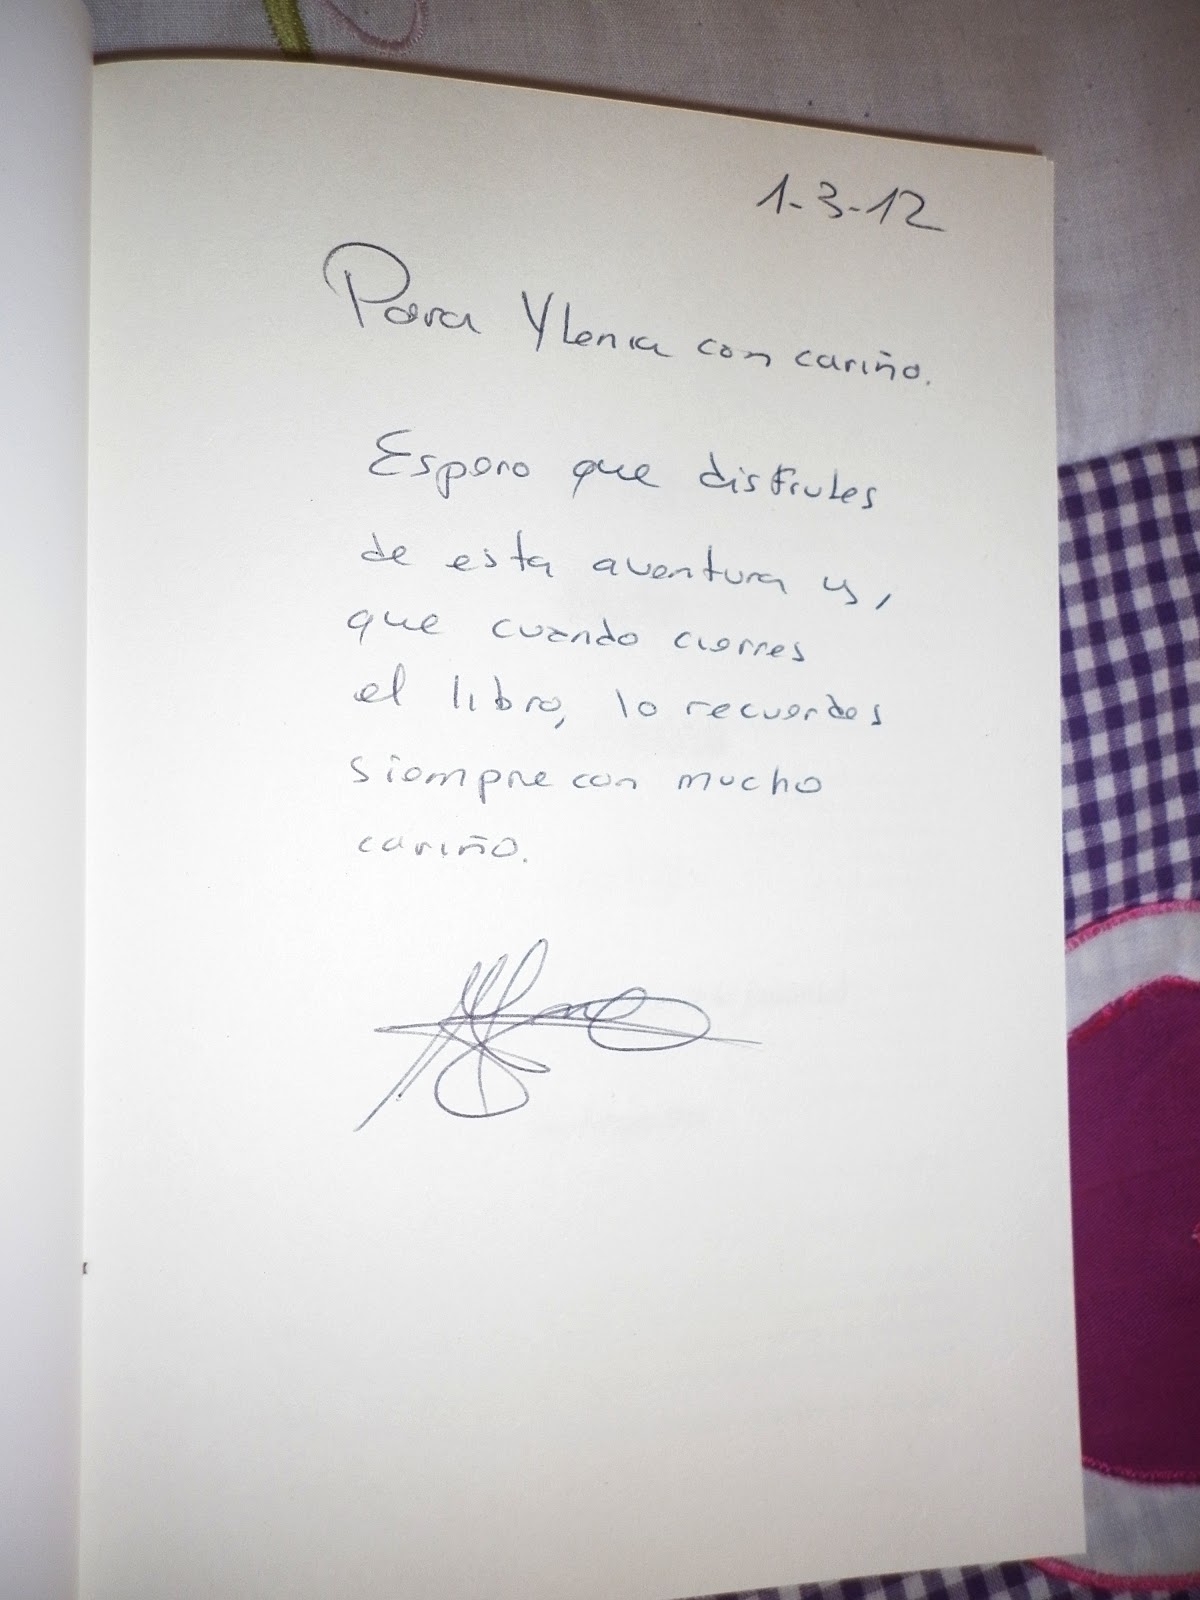 1-3-12
Para Ylenia con cariño.
Espero que disfrutes
de esta aventura y,
que cuando cierres
el libro, lo recuerdes
siempre con mucho
cariño.